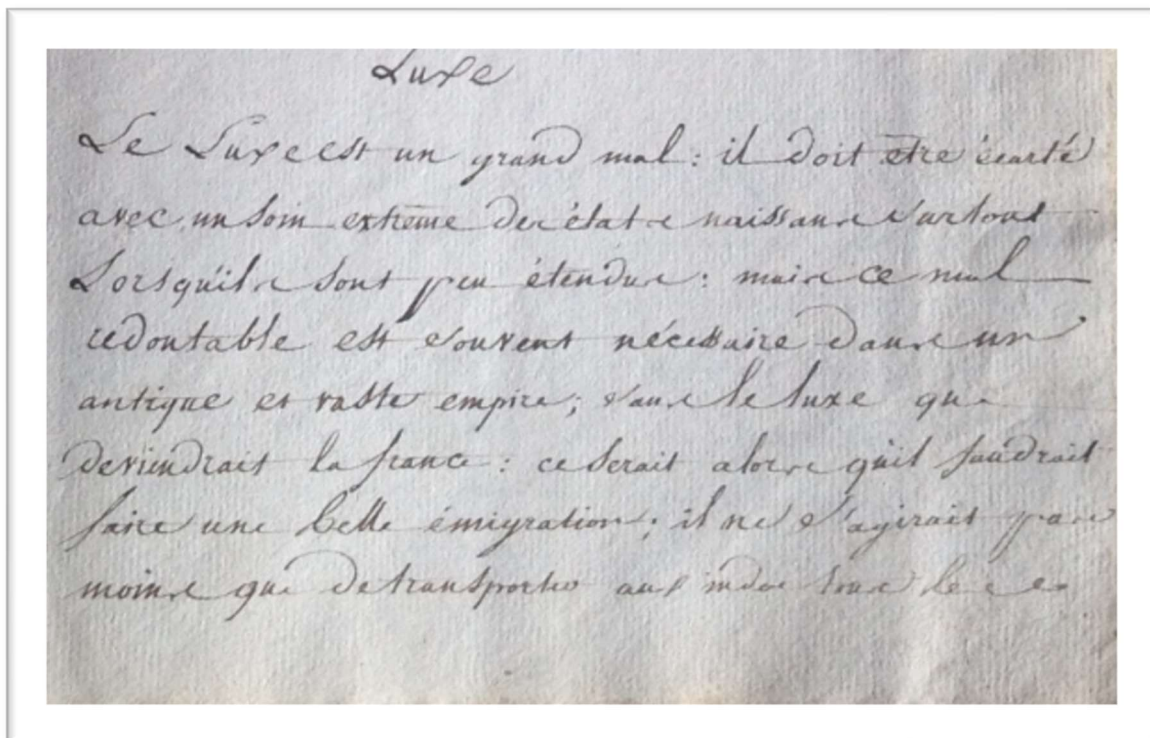 Luxe
Le Luxe est un grand mal : il doit etre écarté
avec un soin extrême des états naissans surtout
Lorsqu'ils sont peu étendus : mais ce mal
redoutable est souvent nécessaire dans un
antique et vaste empire ; sans le luxe que
deviendrait la france : ce serait alors qu'il faudrait
faire une belle émigration ; il ne s'agirait pas
moins que de transporter aux indes tous les